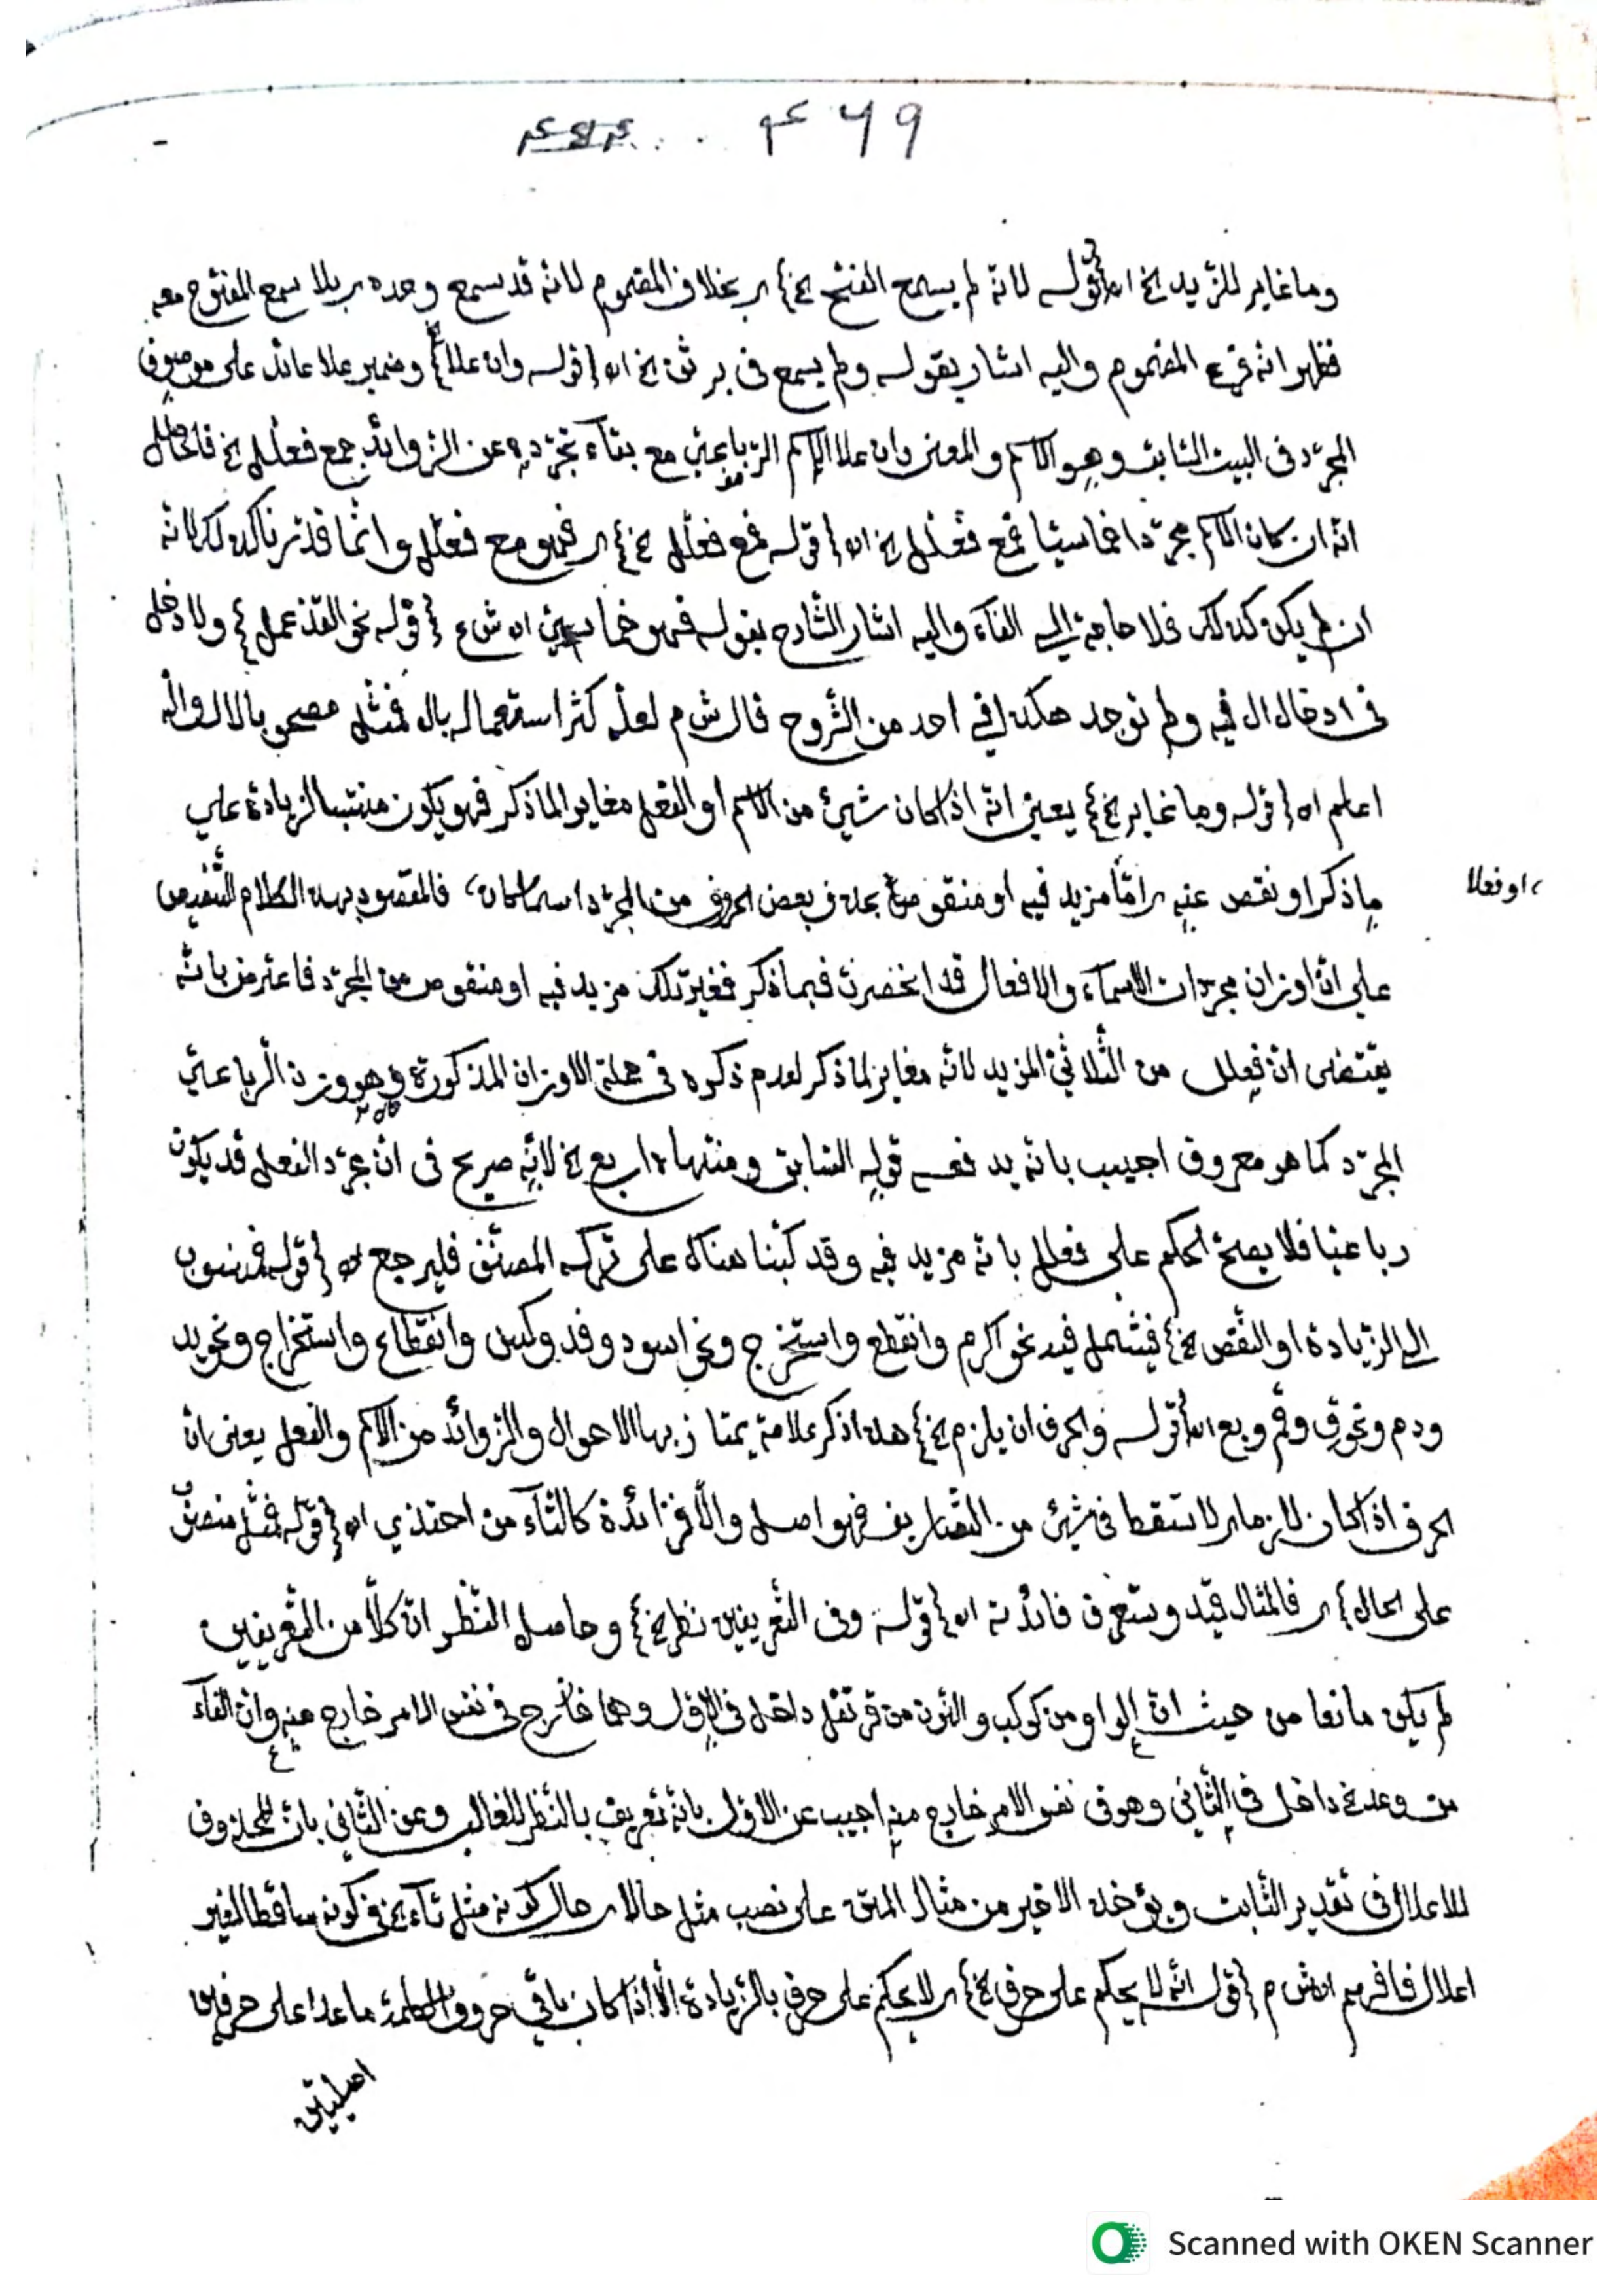 ۴۶۹
وما غاير للزيد الخ اه {قوله لانه لم يسمع الفتح الخ} اي بخلاف المضموم لانه قد يسمع وحده اي بلا سمع المفتوح معه
فظهر انه فرع المضموم واليه اشار بقوله ولم يسمع فى برثن الخ اه {قوله وان علا} وضمير علا عائد على موصوف
المجرّد فى البيت الثابت وهو الاسم والمعنى وان علا الاسم الرباعىّ مع بناء تجرّده عن الزوائد جمع فعلل الخ فالحاصل
انه ان كان الاسم مجرّدا خماسيّا فمع فعلل الخ اه {قوله فمع فعلل الخ} اي فهو مع فعلل وانّما قدّرنا كذلك لانه
ان لم يكن كذلك فلا حاجة الى الفآء واليه اشار الشارح بقوله فهو خماسىّ اه ش ع {قوله نحو القذعمل} ولا دخل
فى ادخال ال فيه ولم توجد هكذا في احد من الشّروح قال ش م لعلّه كثر استعماله بال فمثّل مصحوبا بال والله
اعلم اه {قوله وما غاير الخ} يعنى انه اذا كان شيئ من الاسم او الفعل مغايرا لما ذكر فهو يكون منتسبا لزيادة على
ما ذكر او نقص عنه اي امّا مزيد فيه او منقوص منه بحذف بعض الحروف من المجرّد اسما كان، فالمقصود بهذا الكلام التنصيص
، او فعلا
على انّ اوزان مجرّدات الاسمآء والافعال قد انحصرت فيما ذكر فغير تلك مزيد فيه او منقوص من المجرّد فاعترض بانّه
يقتضى انّ فعلل من الثّلاثىّ المزيد لانه مغاير لما ذكر لعدم ذكره فى جملة الاوزان المذكورة وهو وزن الرباعىّ
المجرّد كما هو معروف اجيب بانه يدفعه قوله السّابق ومنتهاه اربع الخ لانّه صريح فى انّ مجرّد الفعل قد يكون
رباعيّا فلا يصحّ الحكم على فعلل بانه مزيد فيه وقد كتبنا هناك على تركه المصنّف فليرجع اه {قوله فمنسوب
الى الزّيادة او النّقص الخ} فيشمل فيه نحو اكرم وانقطع واستخرج ونحو اسود وفدوكس وانقطاع واستخراج ونحو يد
ودم ونحو ق وقم وبع اه {قوله والحرف ان يلزم الخ} هذا ذكر علامة يمتاز بها الاحوال والزوائد من الاسم والفعل يعنى انّ
الحرف اذا كان لازما اي لا تسقط فى شيئ من التّصاريف فهو اصل والّا فزائدة كالتّآء من احتذي اه {قوله فمثل منصوب
على الحال} اي فالمثال قيد وستعرف فائدته اه {قوله وفى التّعريفين نظر الخ} وحاصل النّظر انّ كلّا من التّعريفين
لم يكن مانعا من حيث انّ الواو من كوكب والنّون من قرنفل داخل فى الاوّل وهما خارج فى نفس الامر خارج منه وانّ الفآء
من وعد داخل فى الثّاني وهو فى نفس الامر خارج منه اجيب عن الاوّل بانه تعريف بالنّظر للغالب وعن الثّاني بانّ المحذوف
للاعلال فى تقدير الثّابت ويؤخذ الاخير من مثال المتن على نصب مثل حالا اي حال كونه مثل تآء الخ فى كونه ساقطا لغير
اعلال فافهم اه ش م {قوله انّه لا يحكم على حرف الخ} اي لا يحكم على حرف بالزّيادة الّا اذا كان باقي حروف الكلمة ما عدا على حرفين
اصليتين
Scanned with OKEN Scanner